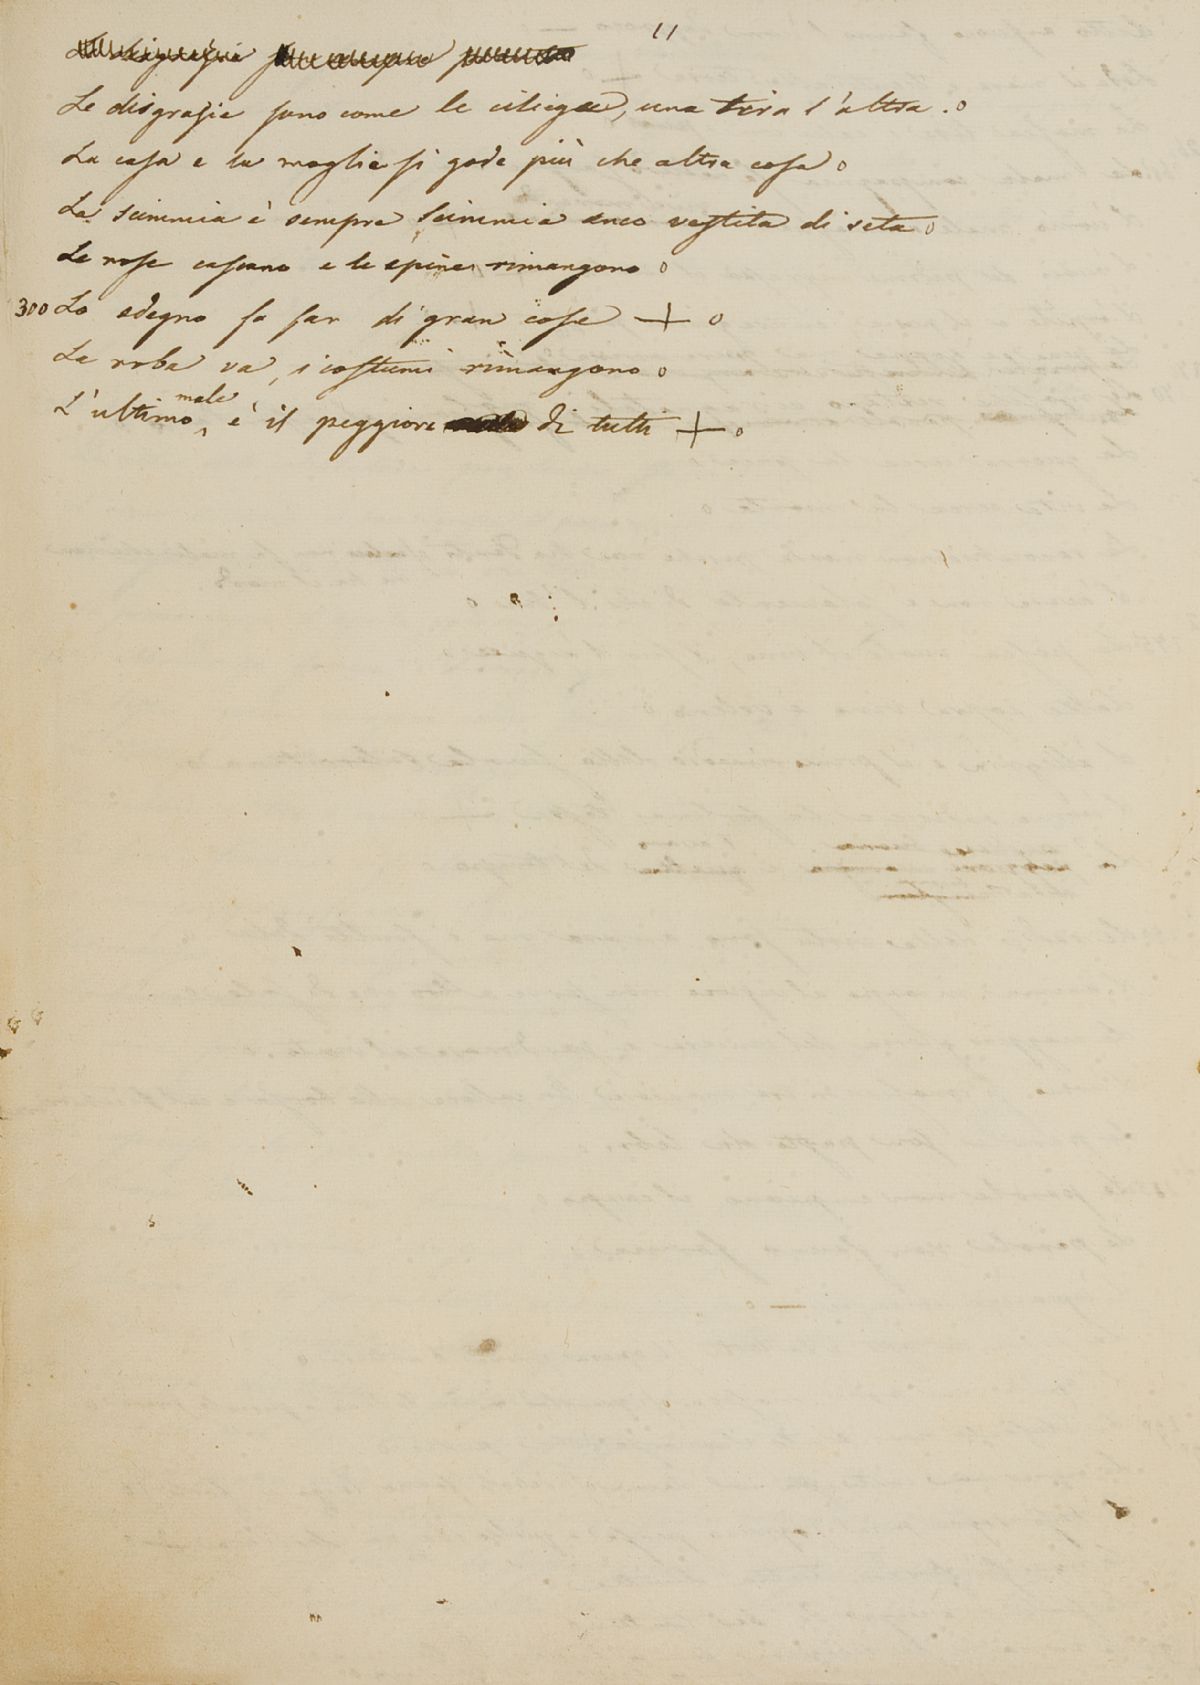 11
Le disgrazie sono come le ciliege, una tira l'altra.
La casa e la moglie si gode più che altra cosa
La scimmia è sempre scimmia anco vestita di seta
Le rose cascano e le spine rimangono
300 Lo sdegno fa far di gran cose +
La roba va, i costumi rimangono
L'ultimo male è il peggiore di tutti +